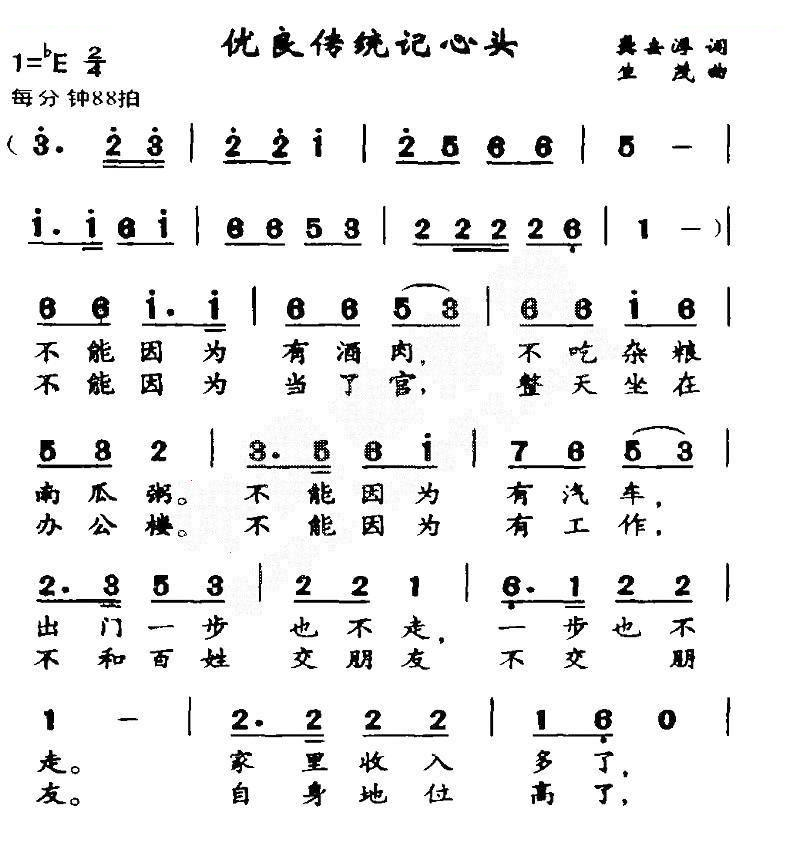 优良传统记心头
1=♭E 2/4
岳 词
生 茂 曲
每分钟88拍
( 3. 2 3 | 2 2 1 | 2 5 6 6 | 5 - |
1. 1 6 1 | 6 6 5 3 | 2 2 2 2 6 | 1 - ) |
6 6 1. 1 | 6 6 5 3 | 6 6 1 6 |
不能因为 有酒肉, 不吃杂粮
不能因为 当了官, 整天坐在
5 3 2 | 3. 5 6 1 | 7 6 5 3 |
南瓜粥。 不能因为 有汽车,
办公楼。 不能因为 有工作,
2. 3 5 3 | 2 2 1 | 6. 1 2 2 |
出门一步 也不走, 一步也不
不和百姓 交朋友, 不交朋
1 - | 2. 2 2 2 | 1 6 0 |
走。 家里收入 多了,
友。 自身地位 高了,